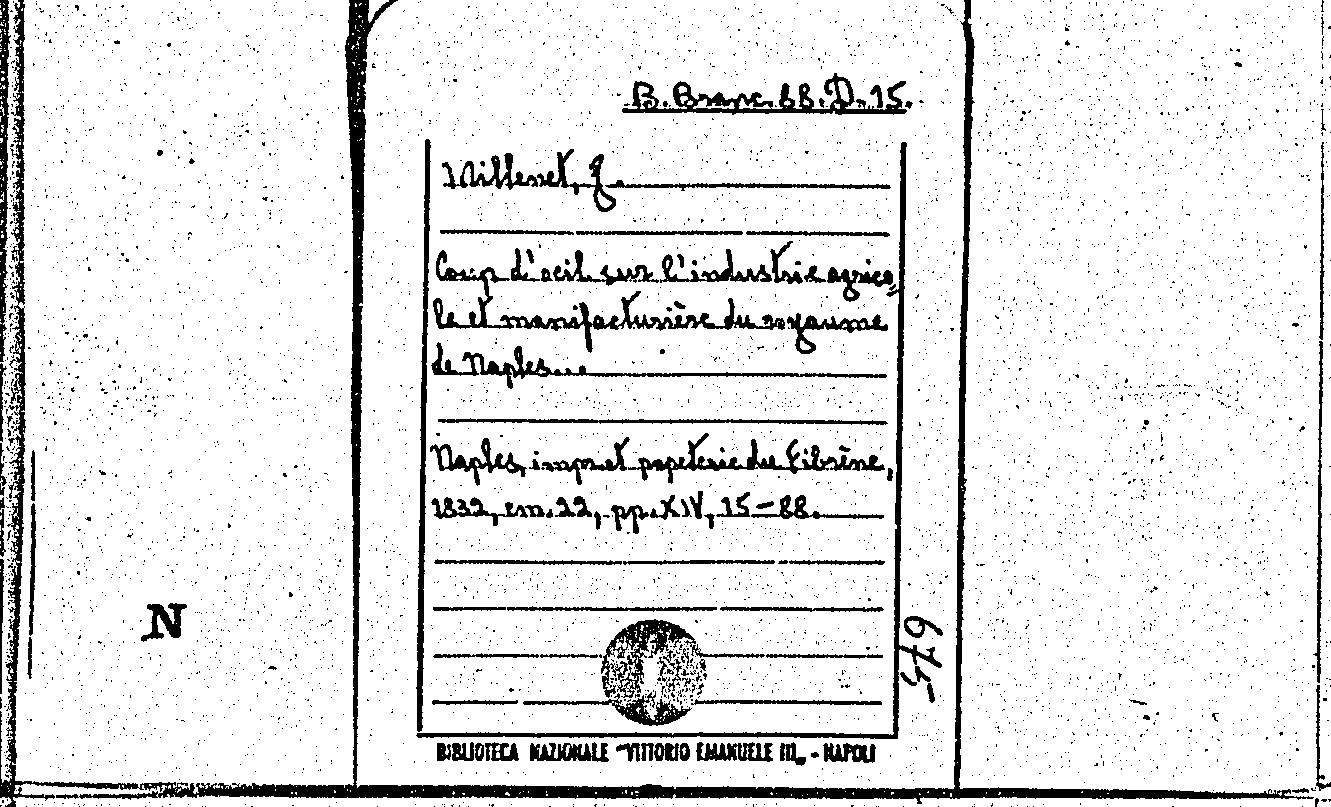 B. Branc. 88. D. 15.
Millenet, J.
Coup d'oeil sur l'industrie agrico=
le et manufacturière du royaume
de Naples...
Naples, impr. et papeterie du Fibrène,
1832, cm. 22, pp. XIV, 15-88.
N
BIBLIOTECA NAZIONALE "VITTORIO EMANUELE III" - NAPOLI